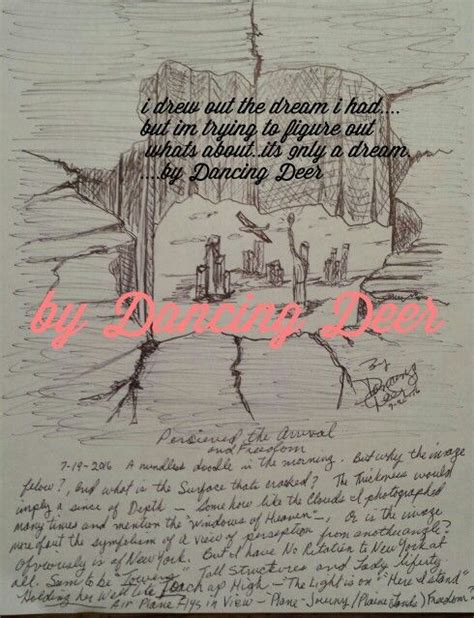 i drew out the dream i had....
but im trying to figure out
whats about..its only a dream
....by Dancing Deer
by Dancing Deer
By
Dancing
Deer
Percieved the Arrival
and Freedom
7-19-2016 A mindless doodle in the morning. But why the image
felow?, and what is the Surface that crashed? The Thickness would
imply a sence of Depth – Some how like the Clouds I photographed
many times and mention the "Windows of Heaven" –, Or is the image
mere of out the symbolism of a view of perseption from another angle?
Obviously is of New York. But I have No Relation to New York at
all. Sem to be "Towering" Tall Structures and Lady Liberty
Holding her Well lite Torch up High – The Light is on "Here I stand"
– Air Plane Flys in View – Plane – Journy / (Plaine Lands) Freedom?